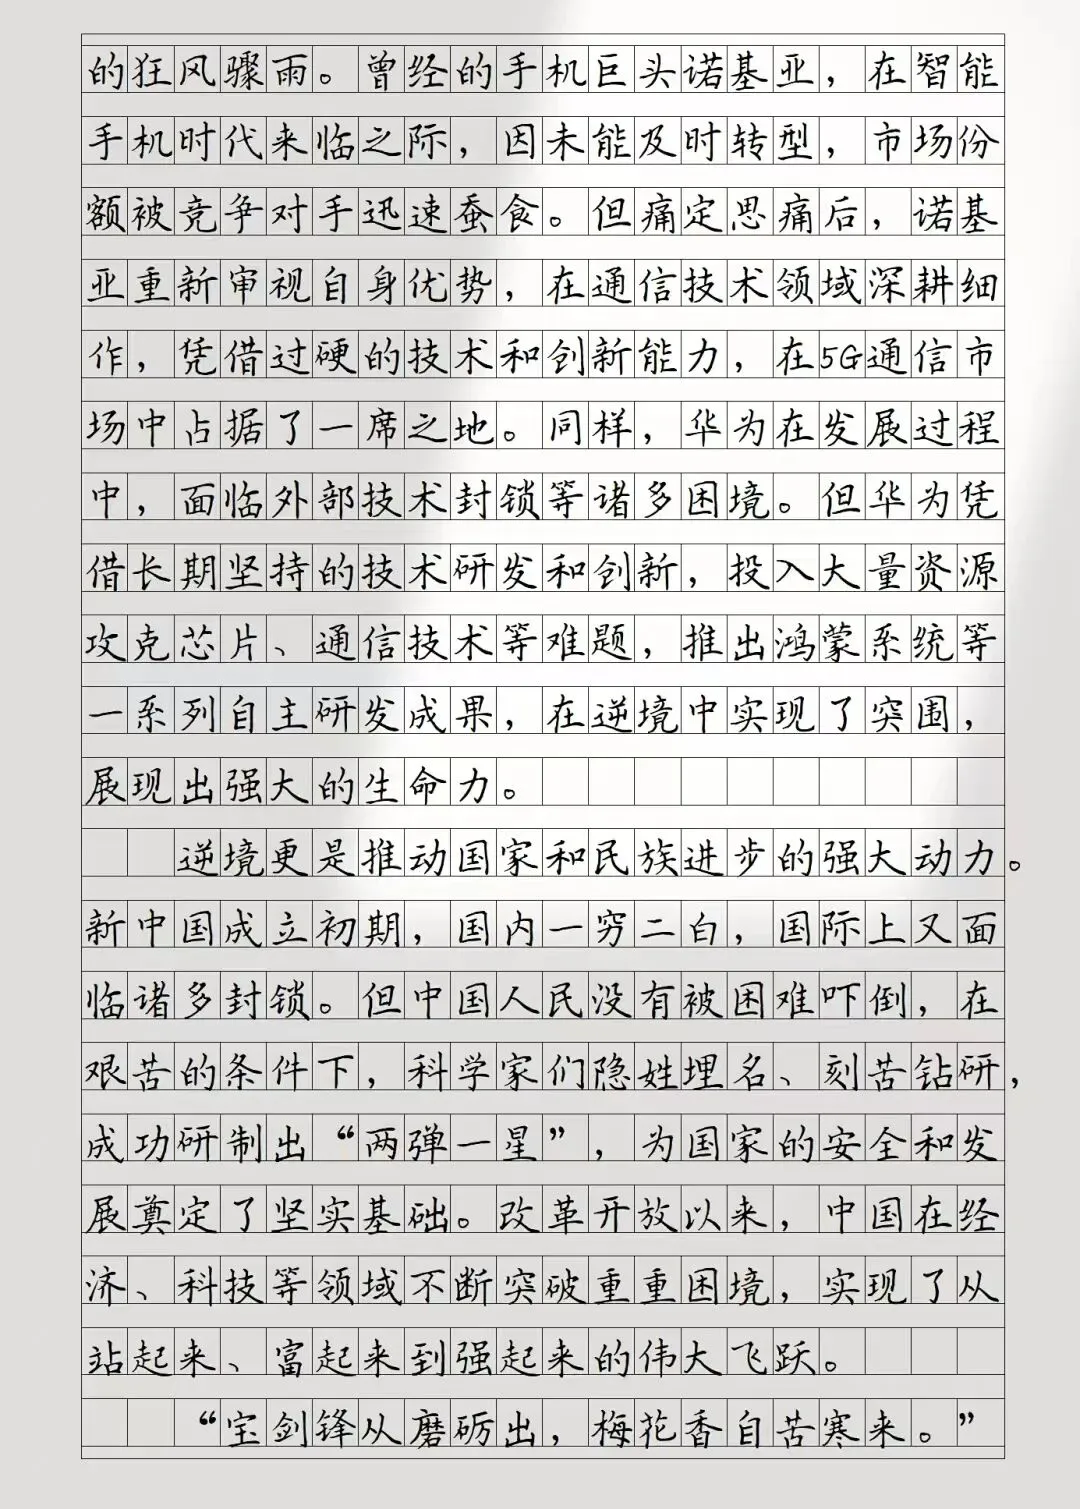 的狂风骤雨。曾经的手机巨头诺基亚，在智能
手机时代来临之际，因未能及时转型，市场份
额被竞争对手迅速蚕食。但痛定思痛后，诺基
亚重新审视自身优势，在通信技术领域深耕细
作，凭借过硬的技术和创新能力，在5G通信市
场中占据了一席之地。同样，华为在发展过程
中，面临外部技术封锁等诸多困境。但华为凭
借长期坚持的技术研发和创新，投入大量资源
攻克芯片、通信技术等难题，推出鸿蒙系统等
一系列自主研发成果，在逆境中实现了突围，
展现出强大的生命力。
逆境更是推动国家和民族进步的强大动力。
新中国成立初期，国内一穷二白，国际上又面
临诸多封锁。但中国人民没有被困难吓倒，在
艰苦的条件下，科学家们隐姓埋名、刻苦钻研，
成功研制出“两弹一星”，为国家的安全和发
展奠定了坚实基础。改革开放以来，中国在经
济、科技等领域不断突破重重困境，实现了从
站起来、富起来到强起来的伟大飞跃。
“宝剑锋从磨砺出，梅花香自苦寒来。”